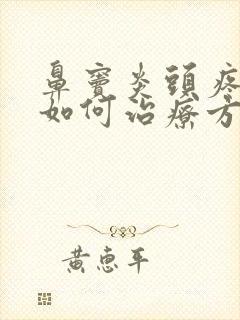 鼻竇炎頭疼
如何治療方
黃惠平